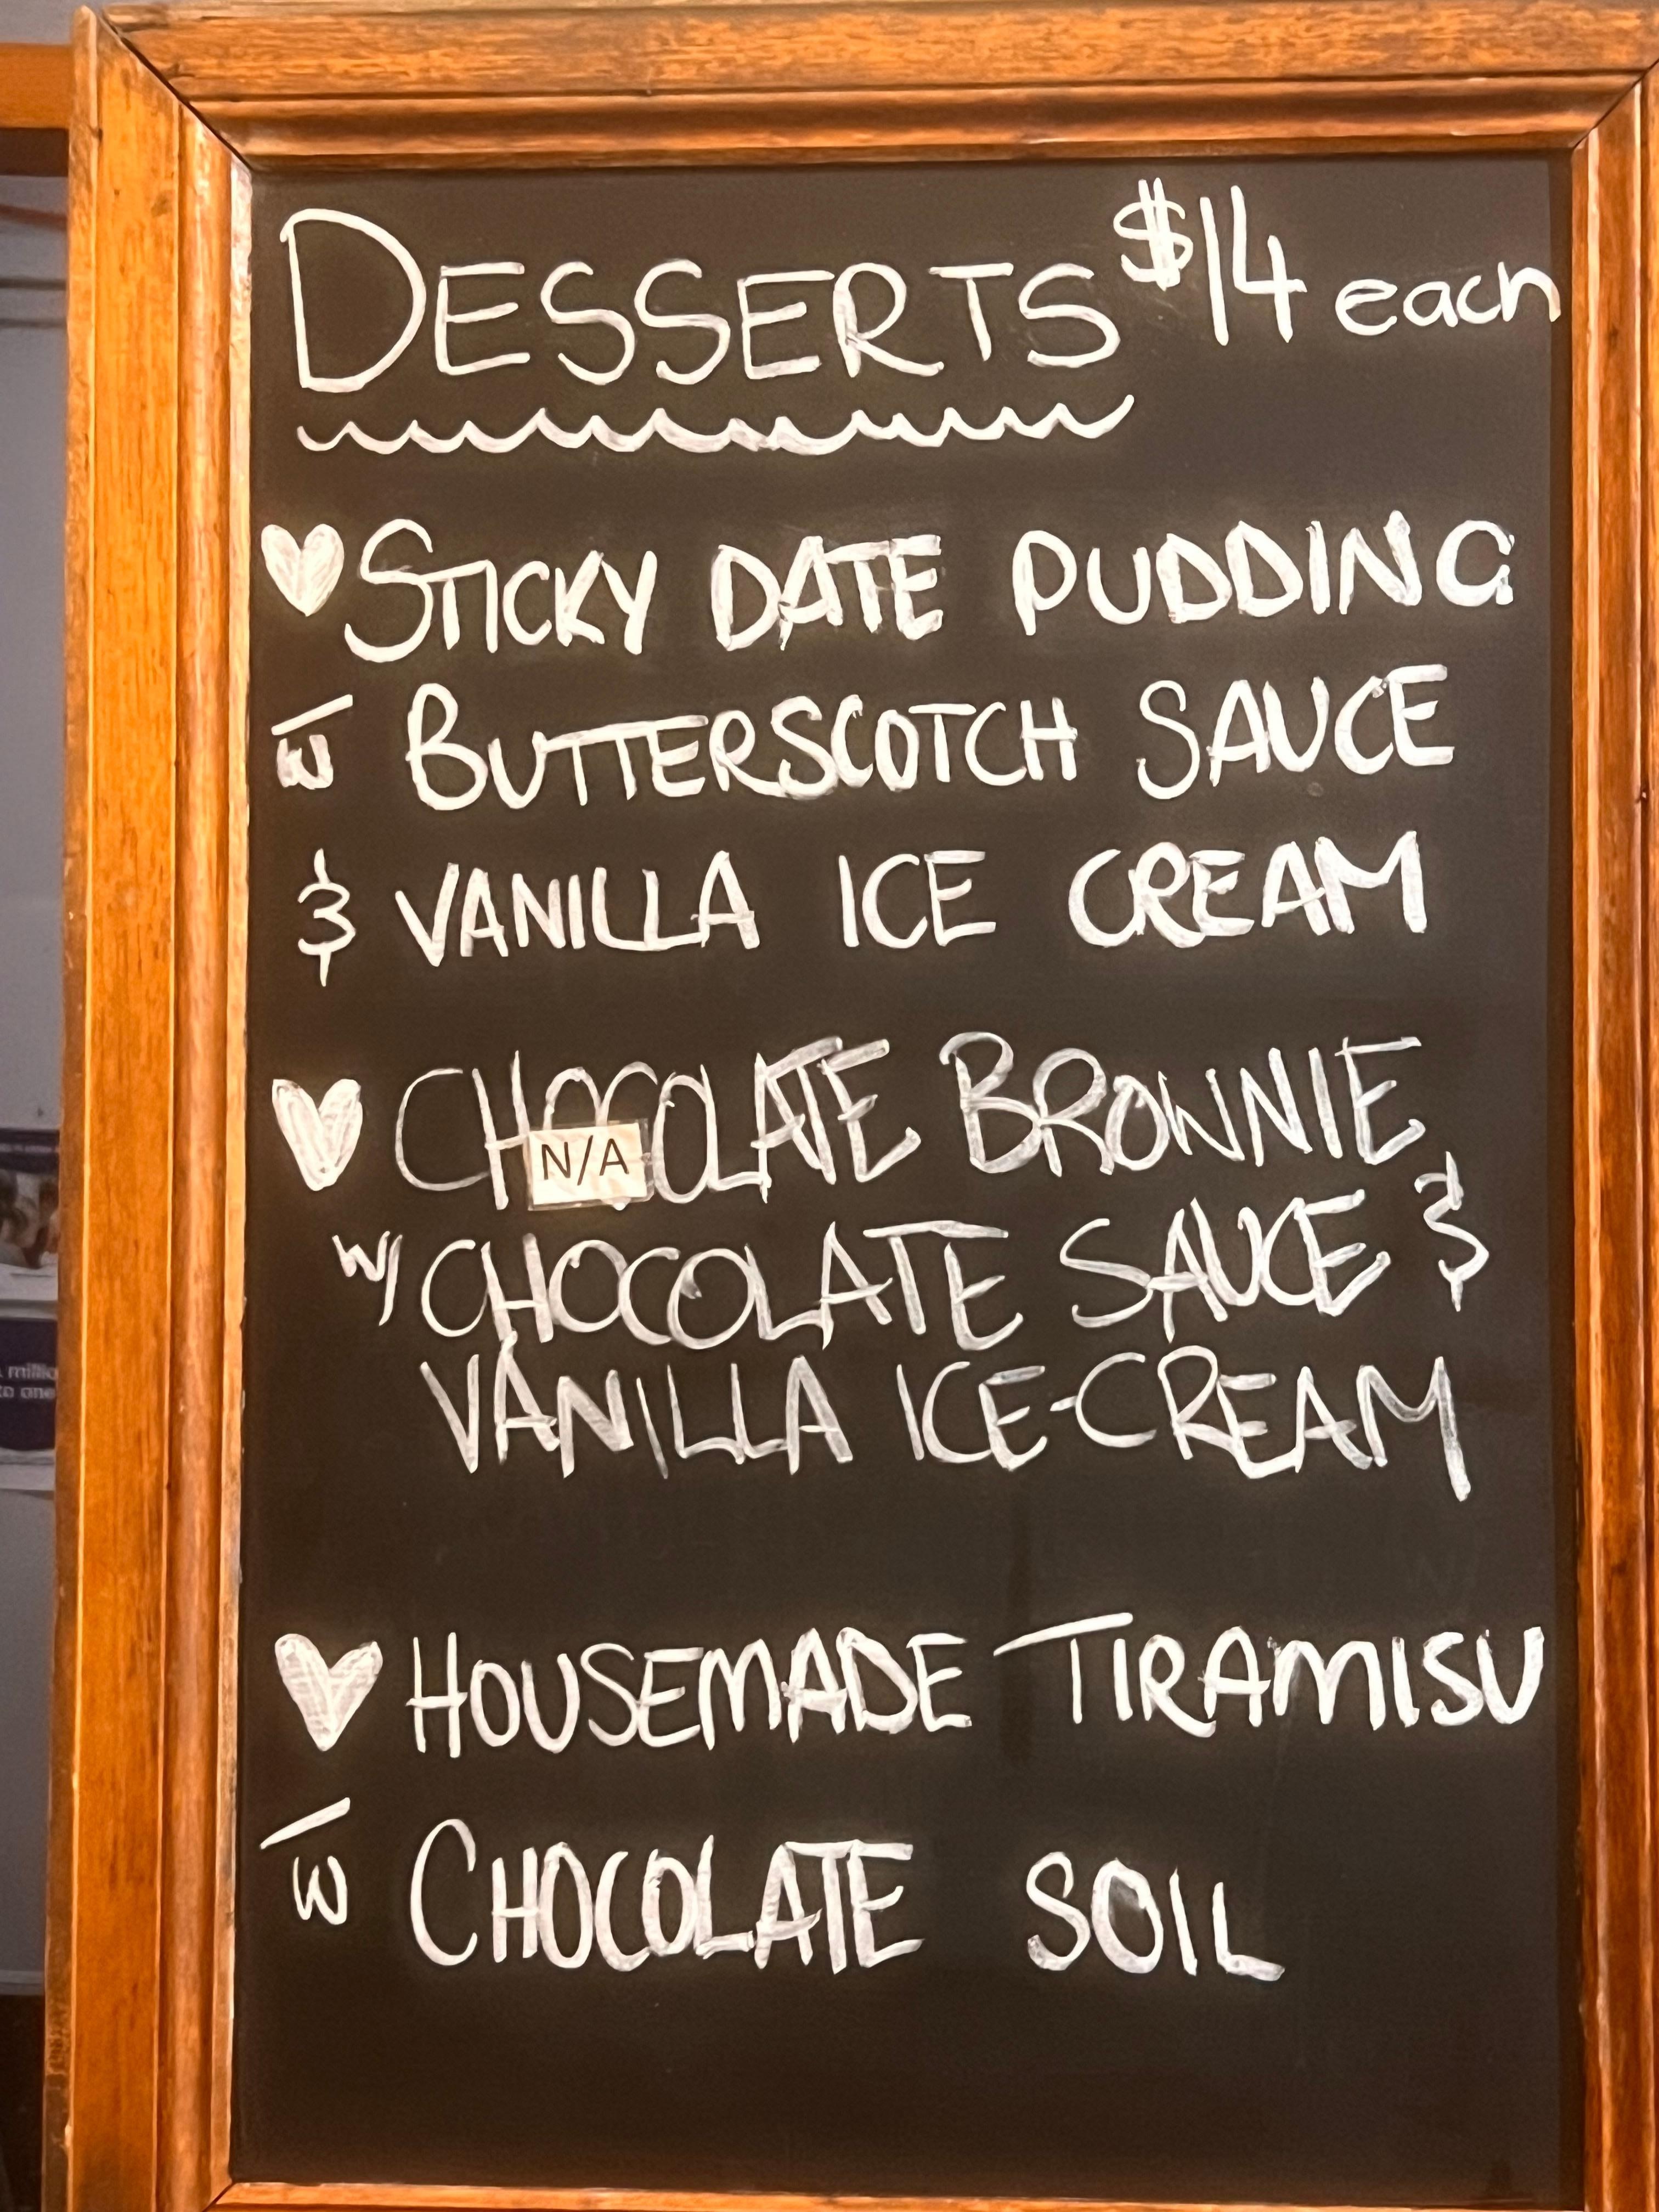 DESSERTS $14 each
STICKY DATE PUDDING
w̅ BUTTERSCOTCH SAUCE
& VANILLA ICE CREAM
CHOCOLATE BROWNIE
N/A
w/ CHOCOLATE SAUCE &
VANILLA ICE-CREAM
HOUSEMADE TIRAMISU
w̅ CHOCOLATE SOIL
millio
to one